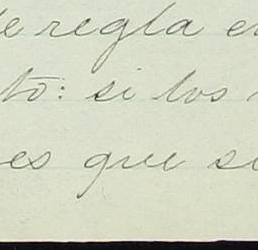 de regla en
to: si los
es que si